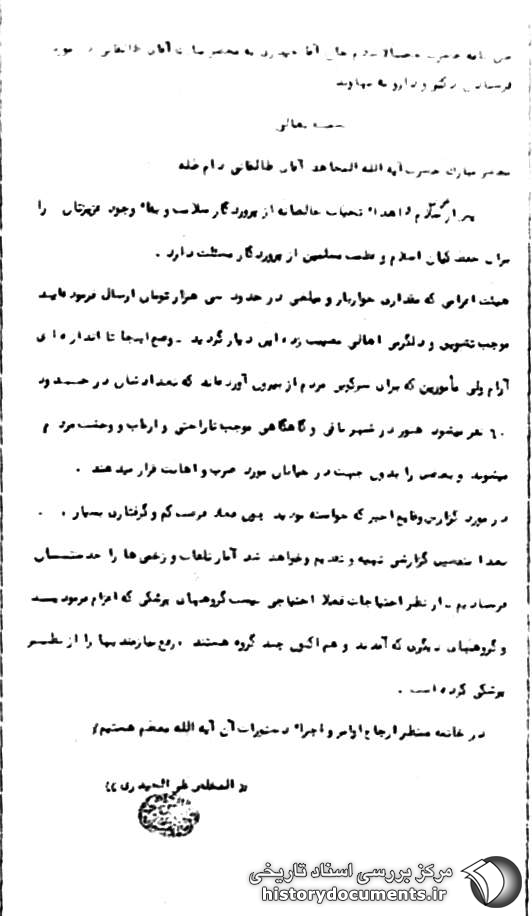 متن نامه حضرت حجةالاسلام حاج آقا حیدری به محضر مبارک آقای طالقانی در مورد
فرستادن دکتر و دارو به نهاوند
بسمه تعالی
محضر مبارک حضرت آیه الله المجاهد آقای طالقانی دام ظله
پس از سلام و اهداء تحیات خالصانه از پروردگار سلامت و بقاء وجود عزیزتان را
برای حفظ کیان اسلام و عظمت مسلمین از پروردگار مسئلت دارد .
هیئت اعزامی که مقداری خواربار و مبلغی در حدود سی هزار تومان ارسال فرموده‌اید
موجب تشویق و دلگرمی اهالی مصیبت زده این دیار گردید . وضع اینجا تا اندازه ای
آرام ولی مأمورین که برای سرکوبی مردم از بیرون آورده‌اند که تعدادشان در حدود
۶۰ نفر میشود هنوز در شهر باقی و گاهگاهی موجب ناراحتی و ارعاب و وحشت مردم
میشوند و بعضی را بدون جهت در خیابان مورد ضرب و اهانت قرار میدهند .
در مورد گزارش وقایع اخیر که خواسته بودید چون فعلا فرصت کم و گرفتاری بسیار .
بعدا بتفصیل گزارشی تهیه و تقدیم خواهد شد آمار تلفات و زخمی ها را خدمتتان
فرستادیم . از نظر احتیاجات فعلا احتیاجی نیست گروههای پزشکی که اعزام فرمودید
و گروههای دیگری که آمدند و هم اکنون چند گروه هستند . رفع نیازمندیها را از نظر
پزشکی کرده است .
در خاتمه منتظر ارجاع اوامر و اجراء دستورات آن آیه الله معظم هستیم /
(( المظفر الحیدری ))
مرکز بررسی اسناد تاریخی
historydocuments.ir